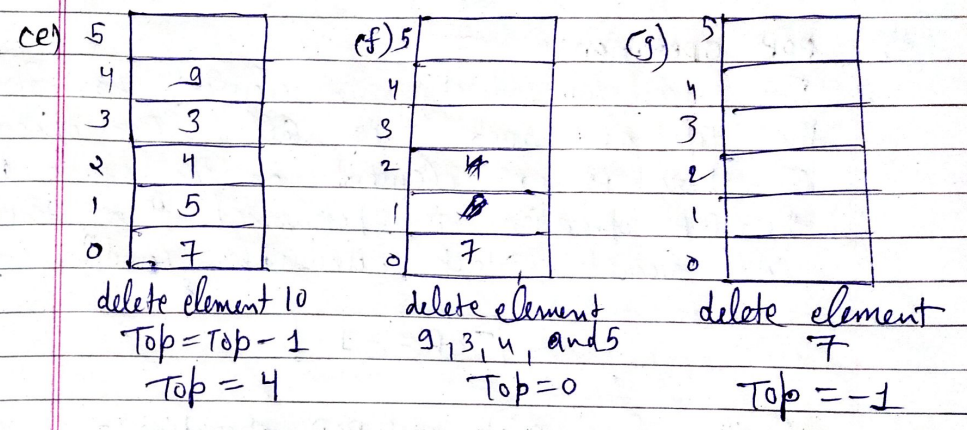 (e) 5
4 9
3 3
2 4
1 5
0 7
delete element 10
Top = Top - 1
Top = 4
(f) 5
4
3
2
1
0 7
delete element
9, 3, 4, and 5
Top = 0
(g) 5
4
3
2
1
0
delete element
7
Top = -1